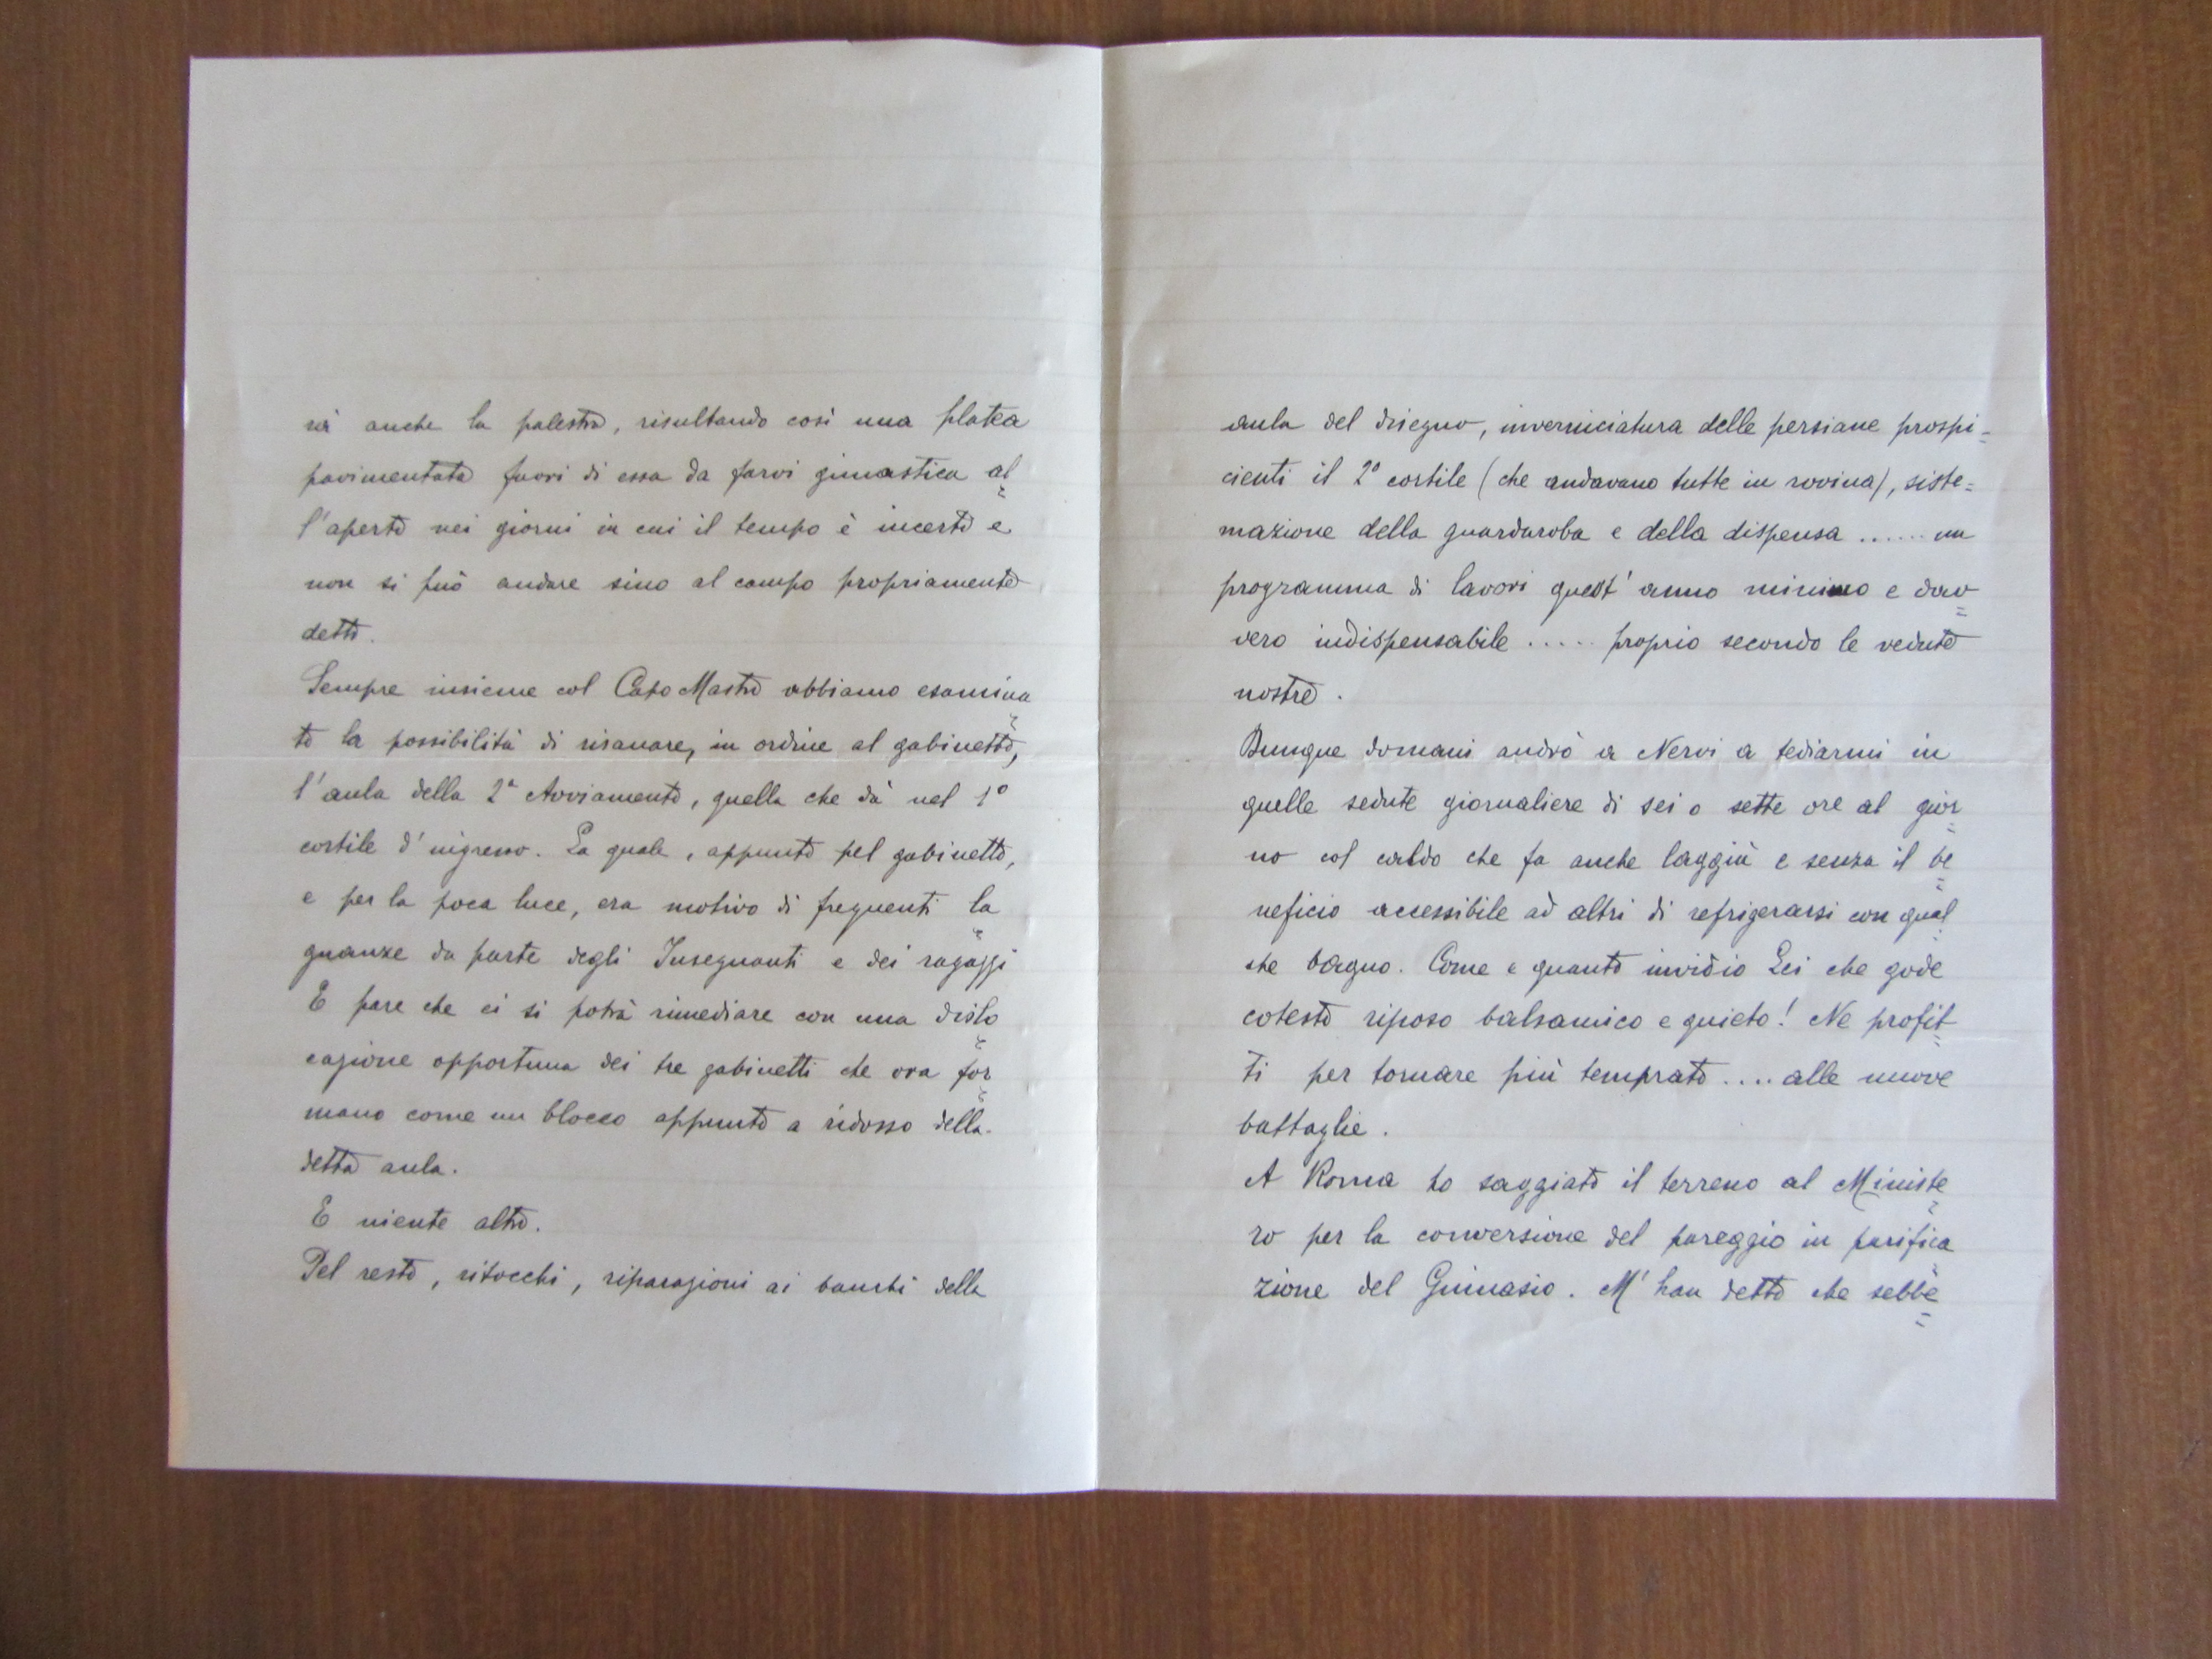 rà anche la palestra, risultando così una platea
pavimentata fuori di essa da farvi ginnastica al=
l'aperto nei giorni in cui il tempo è incerto e
non si può andare sino al campo propriamente
detto.
Sempre insieme col Capo Mastro abbiamo esamina=
to la possibilità di risanare, in ordine al gabinetto,
l'aula della 2ª Avviamento, quella che dà nel 1º
cortile d'ingresso. La quale, appunto pel gabinetto,
e per la poca luce, era motivo di frequenti la=
gnanze da parte degli Insegnanti e dei ragazzi
E pare che ci si potrà rimediare con una dislo=
cazione opportuna dei tre gabinetti che ora for=
mano come un blocco appunto a ridosso della
detta aula.
E niente altro.
Pel resto, ritocchi, riparazioni ai banchi della
aula del disegno, inverniciatura delle persiane prospi=
cienti il 2º cortile (che andavano tutte in rovina), siste=
mazione della guardaroba e della dispensa ...... un
programma di lavori quest'anno minimo e dav=
vero indispensabile ..... proprio secondo le vedute
nostre.
Dunque domani andrò a Nervi a tediarmi in
quelle sedute giornaliere di sei o sette ore al gior=
no col caldo che fa anche laggiù e senza il be=
neficio accessibile ad altri di refrigerarsi con qual=
che bagno. Come e quanto invidio Lei che gode
cotesto riposo balsamico e quieto! Ne profit=
ti per tornare più temprato .... alle nuove
battaglie.
A Roma ho saggiato il terreno al Ministe=
ro per la conversione del pareggio in parifica=
zione del Ginnasio. M'han detto che sebbe=